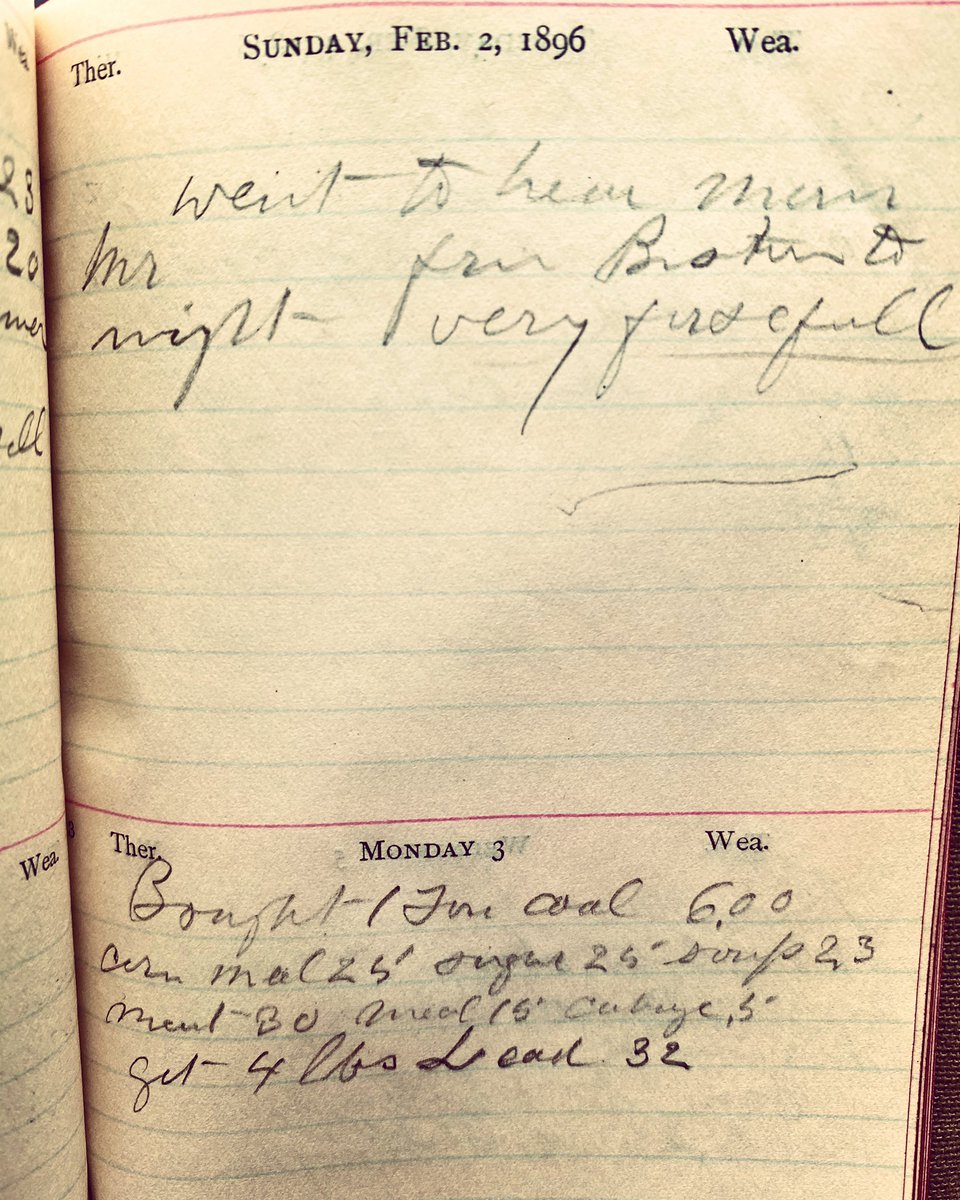 Ther. SUNDAY, FEB. 2, 1896 Wea.
went to hear
Mr from Boston to
night very
Wea. Ther. MONDAY 3 Wea.
Bought 1 Ton coal 6,00
corn meal 25 sugar 25 soup 23
meat 30 meal 15 cabage ,5
get 4 lbs Lead 32
23
20